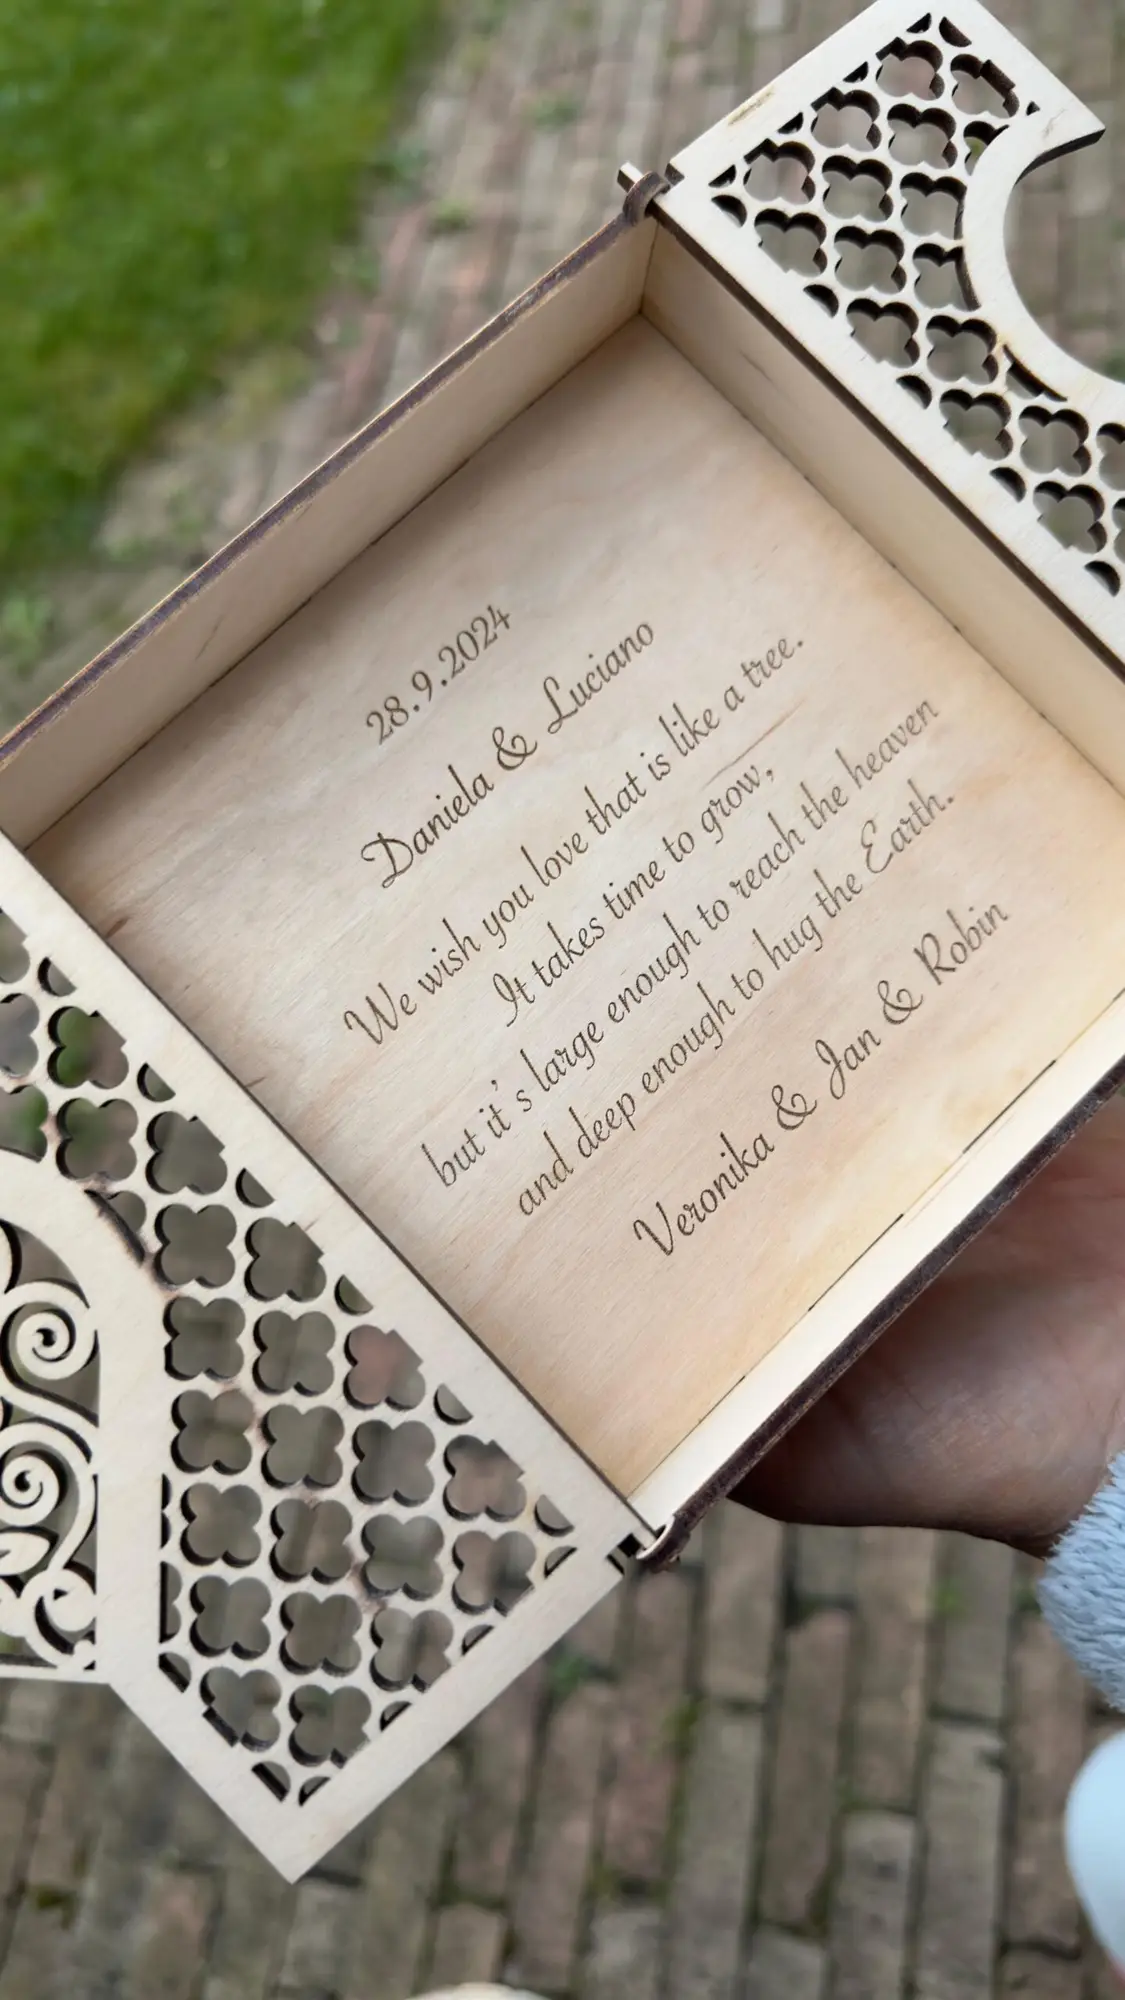 28.9.2024
Daniela & Luciano
We wish you love that is like a tree.
It takes time to grow,
but it's large enough to reach the heaven
and deep enough to hug the Earth.
Veronika & Jan & Robin